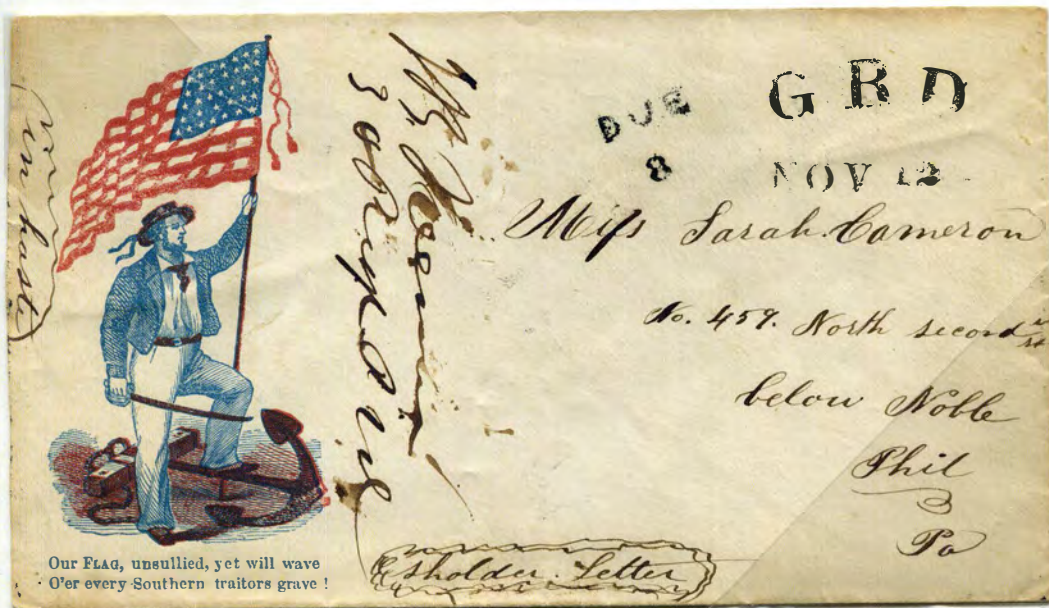 DUE
8
G B D
NOV 12
Miss Sarah Cameron
No. 459. North second st
below Noble
Phil
Pa
in haste
Letter
Our FLAG, unsullied, yet will wave
O'er every Southern traitors grave !